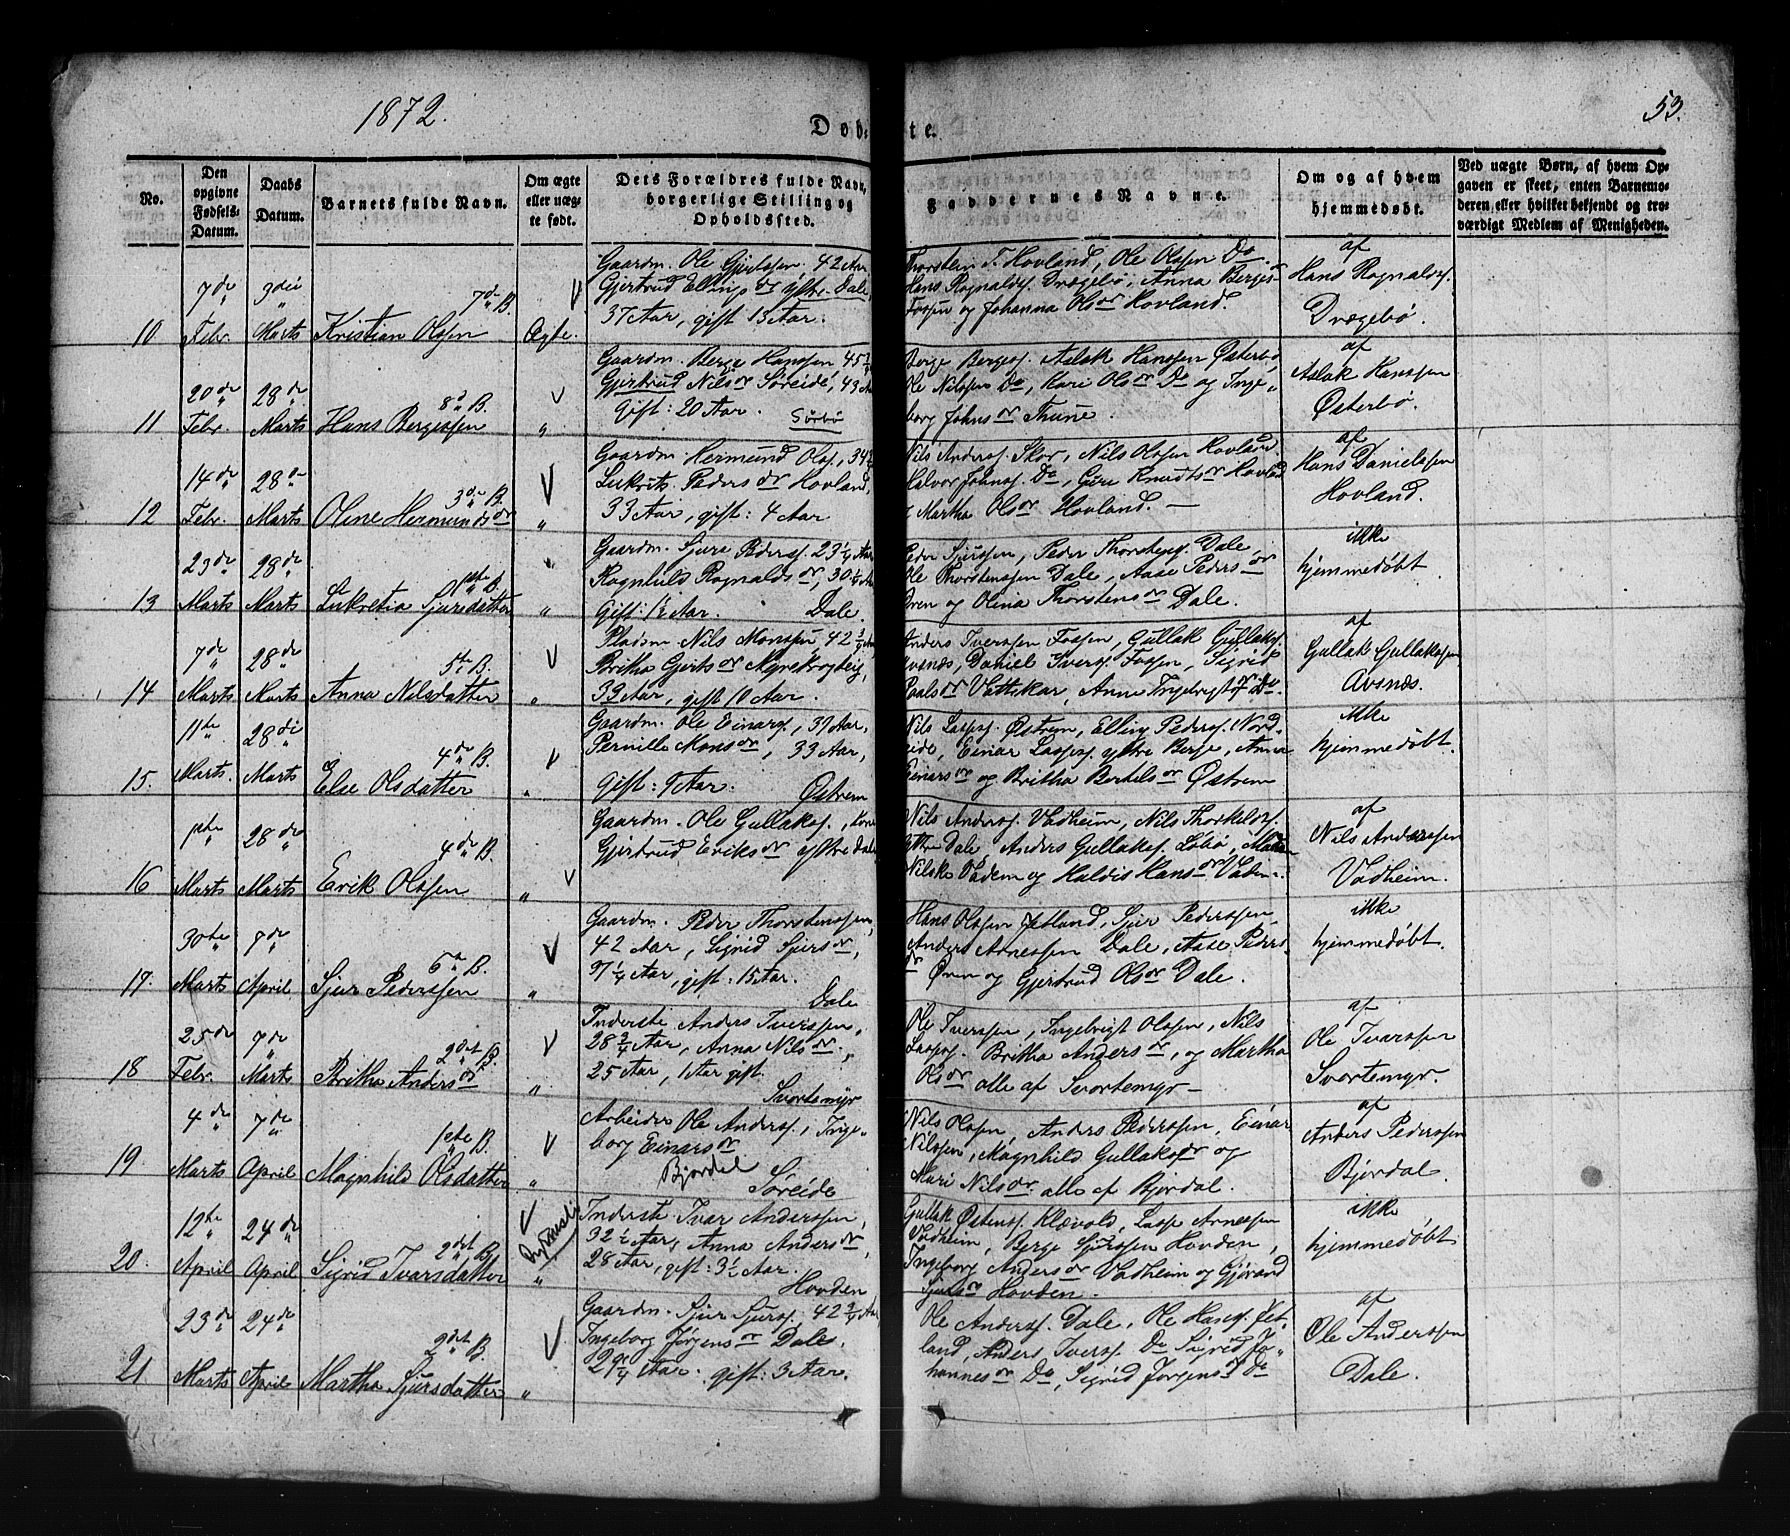 1872.
53.
Døb-te.
No.
Den opgivne Fødsels-Datum.
Daabs Datum.
Barnets fulde Navn.
Om ægte eller uægte født.
Dets Forældres fulde Navn, borgerlige Stilling og Opholdssted.
Faddernes Navne.
Om og af hvem hjemmedøbt.
Ved uægte Børn, af hvem Opgaven er skeet, enten Barnemoderen, eller hvilket bekjendt og troværdigt Medlem af Menigheden.
10
7de Febr.
3die Marts
7de B.
Kristian Olssen
Ægte.
Gaardm. Ole 42 Aar,
Gjertrud Ellingsdr Yttre Dale,
37 Aar, gift 15 Aar.
Thorstein T. Hovland, Ole Olssen Do
Hans Rognaldss. Drægebø, Anna Berges-
Fossen og Johanna Olsdr Hovland.
af
Hans Rognaldss.
Drægebø.
11
20de Febr.
28de Marts
8d B.
Hans Bergessen
"
Gaardm. Berge Hanssen, 45
Gjertrud Nilsdr Søreide, 43 Aar
Gift: 20 Aar. Sørbø
Berge Bergess. Aslak Hanssen Østerbø,
Ole Nilssen Do, Kari Olsdr Do og Inge-
borg Johnsdr Thune.
af
Aslak Hanssen
Østerbø.
12
14de Febr.
28de Marts
3de B.
Oline Hermundsdr
"
Gaardm. Hermund Olss., 34
Lukrets. Pedersdr Hovland,
33 Aar, gift: 4 Aar
Nils Anderss. Skor, Nils Olssen Hovland
Halvor Johnss. Do, Guri Knutsdr Hovland
Martha Olsdr Hovland. —
af
Hans Danielssen
Hovland.
13
23de Marts
28de Marts
1ste B.
Lukretia Sjursdatter
"
Gaardm. Sjur Pederss. 23 1/4 Aar
Ragnhild Rognaldsdr, 30 1/4 Aar
Gift: 1½ Aar. Dale.
Peder Sjurssen, Peder Thorstenss. Dale,
Ole Thorstenssen Dale, Aase Pedersdr
Øren og Olina Thorstensdr Dale.
ikke
hjemmedøbt
14
7de Marts
28de Marts
5te B.
Anna Nilsdatter
"
Pladsm. Nils Monssen, 42 3/4 Aar
Britha Gjertsdr
33 Aar, gift 10 Aar.
Anders Iverssen Fossen, Gullak Gullakss.
Avsnæs, Daniel Iverss. Fossen, Sigrid
Paalsdr Vattekar, Anne Ingebrigtsdr Do.
af
Gullak Gullakssen
Avsnæs.
15.
11te Marts.
28de Marts
4de B.
Else Olsdatter
"
Gaardm. Ole Einarss., 37 Aar,
Pernille Monsdr, 33 Aar,
Gift: 9 Aar. Østrem
Nils Lasses. Østrem, Elling Pederss. Nord-
eide, Einar Lasses. yttre Berge, Anna
Einarsdr og Britha Bertelsdr Østrem
ikke
hjemmedøbt.
16
1ste Marts
28de Marts
4de B.
Erik Olssen
"
Gaardm. Ole Gullakss., Kone
Gjertrud Eriksdr yttre Dale
Nils Anderss. Vadheim, Nils Thorkelss.
Yttre Dale Anders Gullakss. Løbø,
og Haldis Hansdr
af
Nils Anderssen
Vadheim.
17.
30te Marts
9de April
5te B.
Sjur Pederssen
"
Gaardm. Peder Thorstenssen,
42 Aar, Sigrid Sjursdr,
37 1/4 Aar, gift: 15 Aar.
Dale
Hans Olssen Jetland, Sjur Pederssen
Anders Arnessen Dale, Aase Peders-
dr Øren og Gjertrud Olsdr Dale.
ikke
hjemmedøbt.
18
25de Febr.
7de Marts
2det B.
Britha Andersdr
"
Inderste Anders Iverssen,
28 3/4 Aar, Anna Nilsdr.,
25 Aar, 1 Aar gift.
Svortemyr
Ole Iverssen, Ingebrigt Olssen, Nils
Lasses. Britha Andersdr, og Martha
Olsdr alle af Svortemyr —
af
Ole Iverssen
Svortemyr.
19.
4de Marts
7de April
1ste B.
Magnhild Olsdatter
"
Arbeider Ole Anderss., Inge-
borg Einarsdr
Bjordal Søreide
Nils Olssen, Anders Pederssen, Einar
Nilssen, Magnhild Gullaksdr og
Mari Nilsdr. alle af Bjordal.
af
Anders Pederssen
Bjordal.
20.
12te April
24de April
2det B.
Sigrid Ivarsdatter
"
Inderste Ivar Anderssen,
32 ½ Aar, Anna Andersdr,
28 Aar, gift: 3½ Aar.
Hovden
Gullak Østenss. Klævold, Lasse Arnessen
Vadheim, Berge Sjurssen Hovden,
Ingeborg Andersdr Vadheim og Gjørand
Sjursdr Hovden.
ikke
hjemmedøbt
21
23de Marts
24de April
2det B.
Martha Sjursdatter
"
Gaardm. Sjur Sjurss., 42 3/4 Aar
Ingeborg Jørgensdr Dale,
29 1/4 Aar. gift: 3 Aar.
Ole Anderss. Dale, Ole Hanss. Jet-
land, Anders Iverss. Do Sigrid Jo-
hannesdr Do, Sigrid Jørgensdr Do
af
Ole Anderssen
Dale.